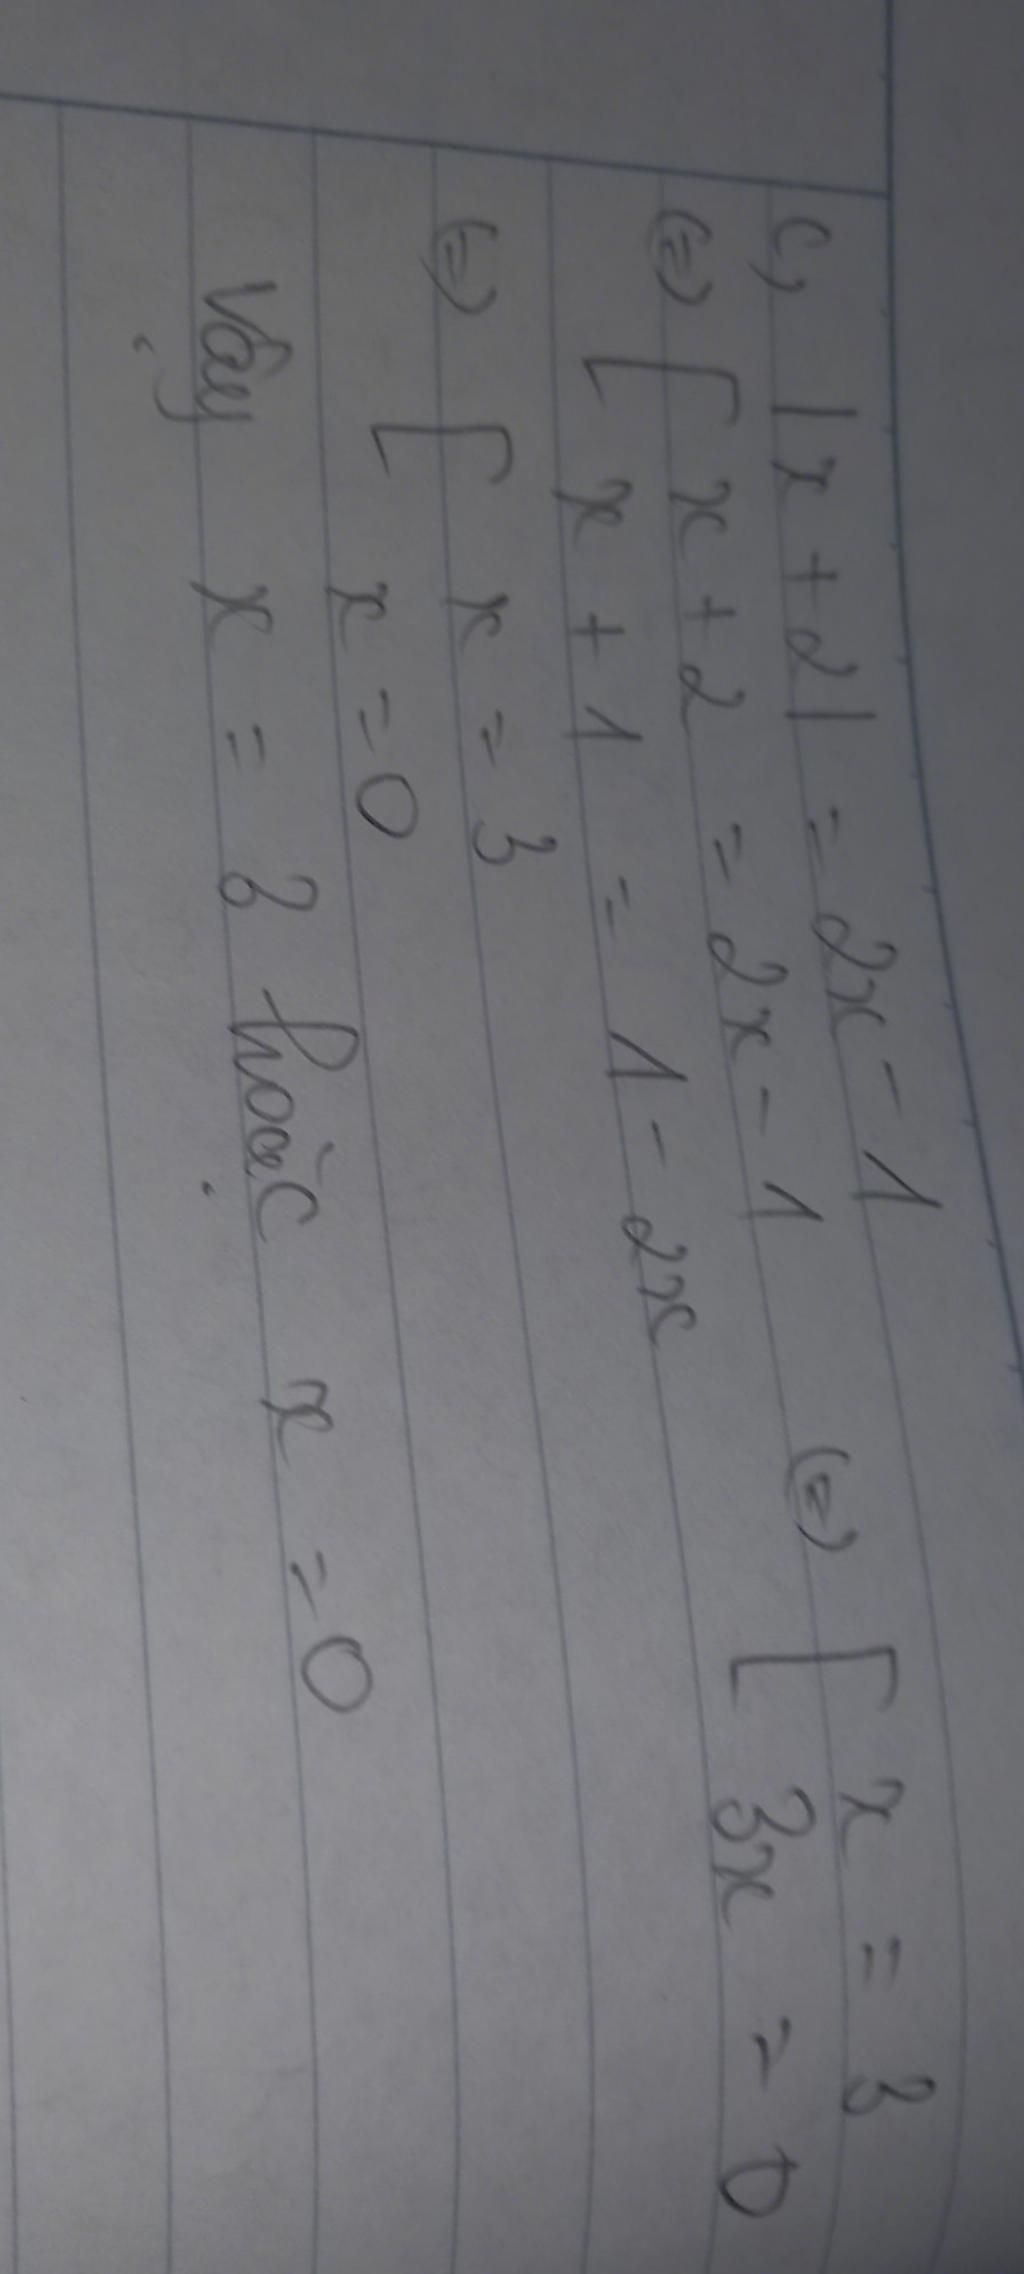 c, |x + 2| = 2x - 1
(=) [ x + 2 = 2x - 1 (=) [ x = 3
x + 1 = 1 - 2x 3x = 0
(=) [ x = 3
x = 0
Vậy x = 3 hoặc x = 0